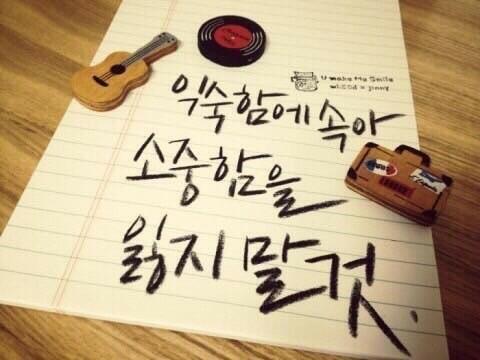 U make Me Smile
익숙함에 속아
소중함을
잃지 말 것.